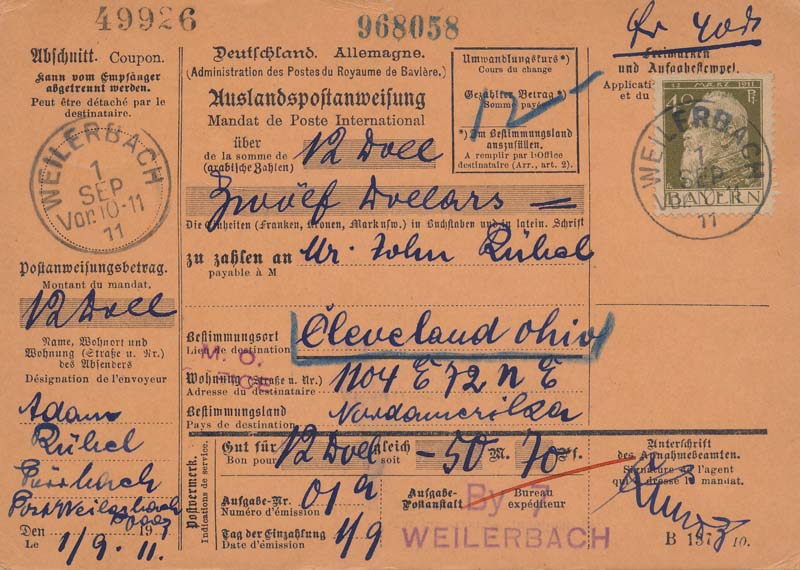 49926
968058
Abschnitt. Coupon.
Kann vom Empfänger
abgetrennt werden.
Peut être détaché par le
destinataire.
WEILERBACH
1
SEP
Vor.10-11
11
Postanweisungsbetrag.
Montant du mandat.
12 Doll
Name, Wohnort und
Wohnung (Straße u. Nr.)
des Absenders
Désignation de l'envoyeur
Adam
Rühel
Den
Le 1/9. 11.
Deutschland. Allemagne.
(Administration des Postes du Royaume de Bavière.)
Auslandspostanweisung
Mandat de Poste International
über
de la somme de
(arabische Zahlen)
12 Doll
Zwölf Dollars =
Die Einheiten (Franken, Kronen, Mark usw.) in Buchstaben und in latein. Schrift
zu zahlen an Mr. John Rühel
payable à M
Bestimmungsort
Lieu de destination
Cleveland Ohio
M. O.
Wohnung (Straße u. Nr.)
Adresse du destinataire
1104 E 72 N E
Bestimmungsland
Pays de destination
Nordamerika
Postvermerk.
Indications de service.
Gut für 12 Doll gleich - 50 M. 70 Pf.
Bon pour soit
Aufgabe-Nr.
Numéro d'émission
019
Tag der Einzahlung
Date d'émission
1/9
Aufgabe-
Postanstalt
Bureau
expéditeur
By 7
WEILERBACH
Umwandlungskurs*)
Cours du change
Gezahlter Betrag*)
Somme payée
12-
*) Im Bestimmungsland
auszufüllen.
A remplir par l'Office
destinataire (Arr., art. 2).
Freimarken
und Aufgabestempel.
40
12 MÄRZ 1911
Pf
BAYERN
WEILERBACH
1
SEP
11
Unterschrift
des Annahmebeamten.
Signature de l'agent
qui a dressé le mandat.